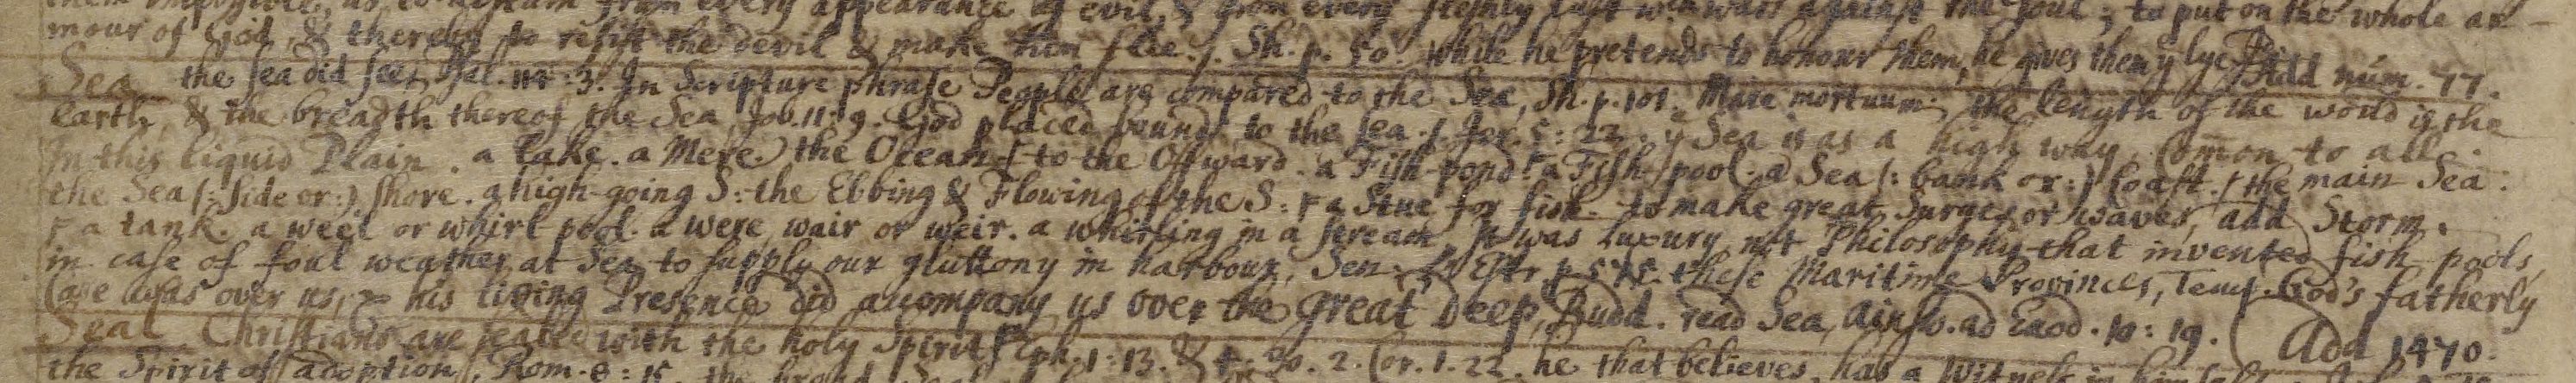 them impossible, as to abstain from every appearance of evil, & from every fleshly lust wch wars against the soul; to put on the whole ar-
mour of God, & thereby to resist the devil & make him flee. Sh. p. 50. while he pretends to honour them, he gives them ye lye Ibid
Sea the sea did see, Psal. 114:3. In Scripture phrase People are compared to the Sea, Sh. p. 101. Mare mortuum. Add num. 77.
Earth, & the breadth thereof the Sea, Job. 11:9. God placed bounds to the sea. Jer. 5:22. ye Sea is as a high way, comon to all. the length of the world is the
In this liquid Plain. a lake. a Mere. the Ocean to the Offward. a Fish-pond a Fish-pool. a Sea (: bank or :) Coast. the main Sea.
the Sea (: side or :) shore. a high-going S: the Ebbing & Flowing of the S: a Stue for fish. to make great Surges or waves, add Storm.
a tank. a weel or whirl pool. a were, wair or weir. a whirling in a stream. It was Luxury, not Philosophy that invented fish-pools,
in case of foul weather at Sea to supply our gluttony in harbour, Sen. these Maritime Provinces, Temp. God's fatherly
Care was over us, & his living Presence did accompany us over the great Deep, Budd. read Sea, Ainsw. ad Exod. 10:19.
Seal Christians are sealed with the holy Spirit Eph. 1:13. & 4:30. 2. Cor. 1.22. he that believes, has a Witness in himself Add 1470.
the Spirit of adoption, Rom. 8:15.